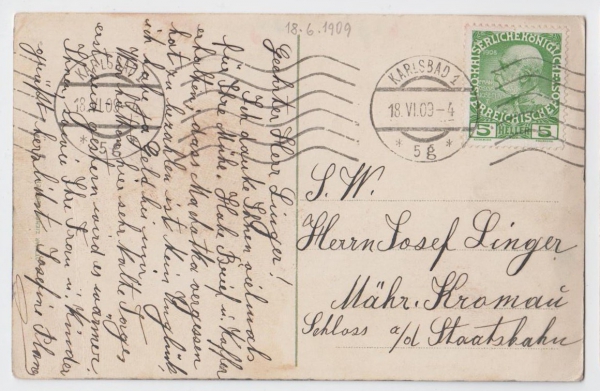 18.6.1909
Geehrter Herr Linger!
Ich danke Ihnen vielmals
für Ihre Mühe. Habe Brief u. Koffer
erhalten, dass Machatka vergessen
hat zu bezahlen ist kein Unglück,
ich habe ja Geld hier
Wir hatten hier sehr kalte Tage
erst seit gestern wird es wärmer.
Ihnen sowie Ihre Frau u. Kinder
grüßt herzlichst Josefine Plane
KARLSBAD 1
18.VI.09-4
* 5g *
KARLSBAD 1
18.VI.09
* 5g *
KAISERLICHE KÖNIGLICHE ÖSTERREICHISCHE POST
1908
5 HELLER 5
S. W.
Herrn Josef Linger
Mähr. Kromau
Schloss a/d Staatsbahn